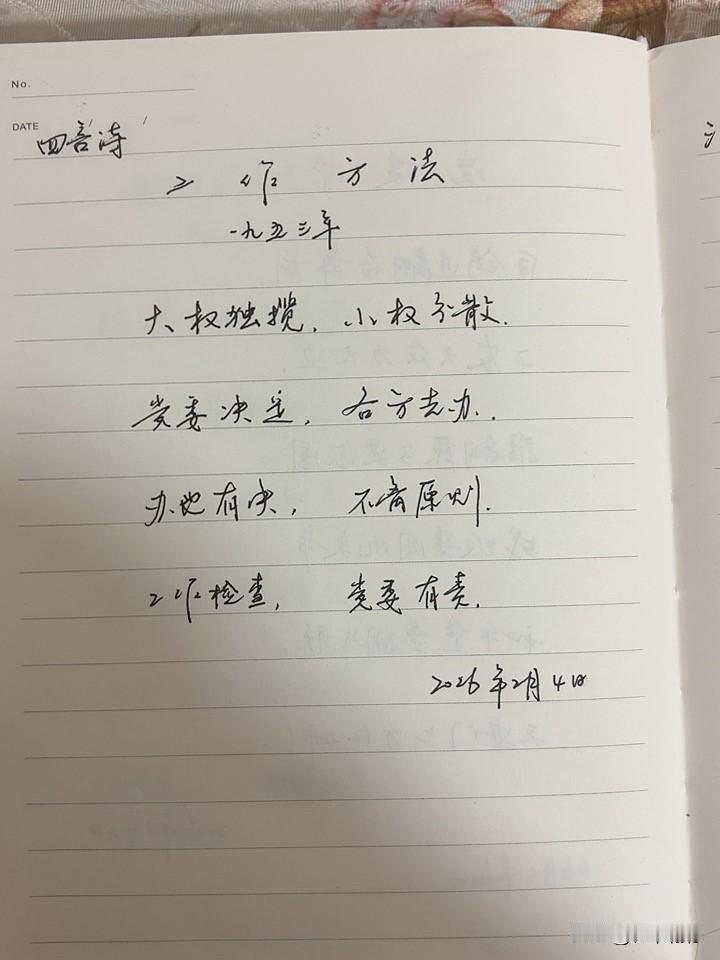 No.
DATE
四言诗
工作方法
一九五三年
大权独揽,小权分散.
党委决定,各方去办.
办也有决,不离原则.
工作检查,党委有责.
2026年2月4日